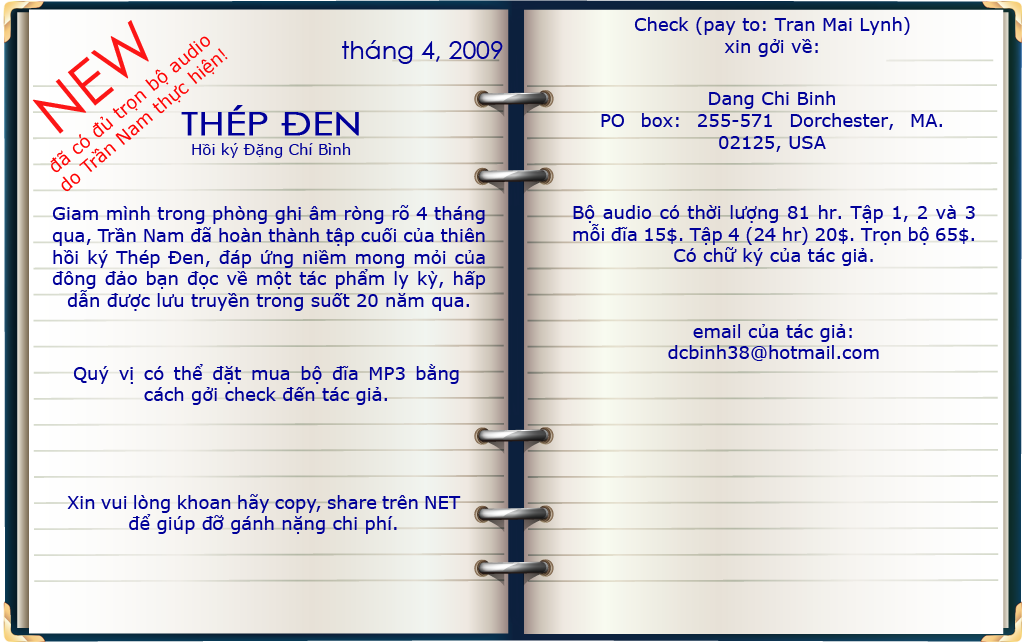 NEW
đã có đủ trọn bộ audio
do Trần Nam thực hiện!
tháng 4, 2009
THÉP ĐEN
Hồi ký Đặng Chí Bình
Giam mình trong phòng ghi âm ròng rõ 4 tháng
qua, Trần Nam đã hoàn thành tập cuối của thiên
hồi ký Thép Đen, đáp ứng niềm mong mỏi của
đông đảo bạn đọc về một tác phẩm ly kỳ, hấp
dẫn được lưu truyền trong suốt 20 năm qua.
Quý vị có thể đặt mua bộ đĩa MP3 bằng
cách gởi check đến tác giả.
Xin vui lòng khoan hãy copy, share trên NET
để giúp đỡ gánh nặng chi phí.
Check (pay to: Tran Mai Lynh)
xin gởi về:
Dang Chi Binh
PO box: 255-571 Dorchester, MA.
02125, USA
Bộ audio có thời lượng 81 hr. Tập 1, 2 và 3
mỗi đĩa 15$. Tập 4 (24 hr) 20$. Trọn bộ 65$.
Có chữ ký của tác giả.
email của tác giả:
dcbinh38@hotmail.com